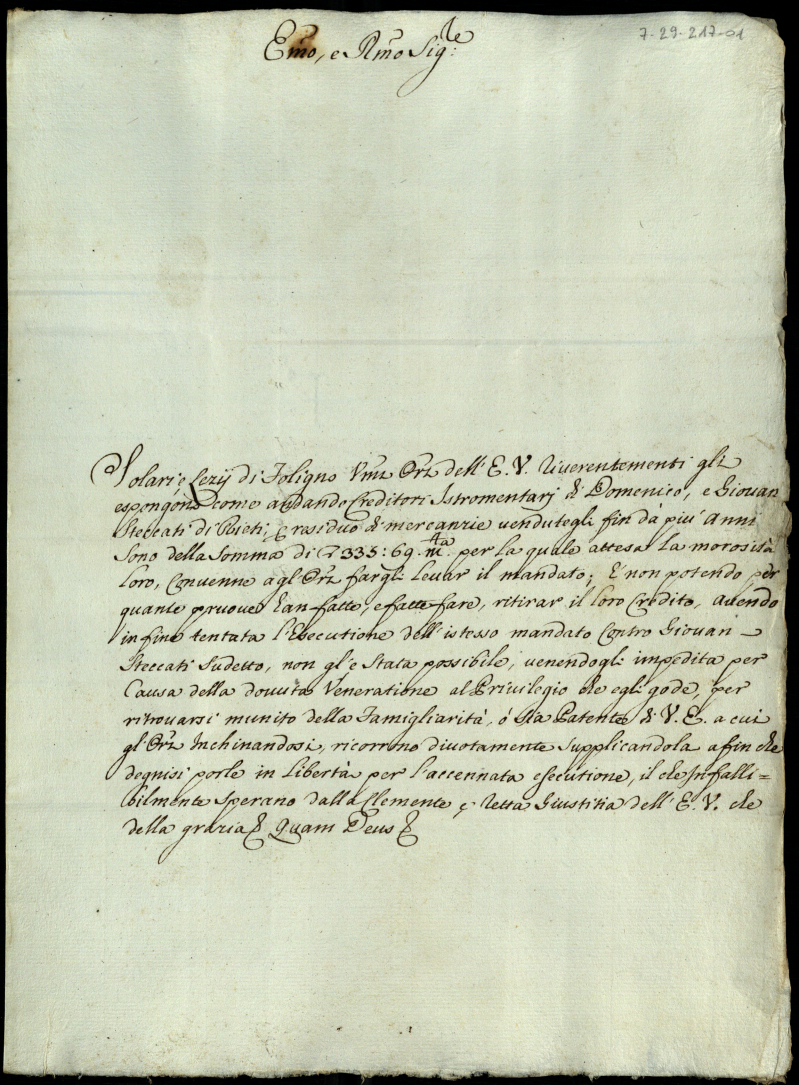 7-29-217-01
Emo, e Rmo Sig:re
Solari, e Lezij di Foligno Vmi Orri dell' E. V. riverentementi gli
espongono come andando Creditori Istromentarj di Domenico, e Giovan
Steccati di Rieti, residuo di mercanzie vendutegli fin dà più Anni
sono della somma di 335:69 mta. per la quale attesa la morosità
loro, Convenne agl'Orri fargli levar il mandato; E non potendo per
quante pruove han fatte, e fatte fare, ritirar il loro Credito, avendo
in fine tentata l'Esecutione dell'istesso mandato contro Giovan
Steccati sudetto, non gl'è stata possibile, venendogli impedita per
Causa della dovuta Veneratione al Privilegio che egli gode, per
ritrovarsi munito della Famigliarità, ò sia Patente di V. E. a cui
gl'Orri Inchinandosi, ricorrono divotamente supplicandola afin che
degnisi porle in libertà per l'accennata esecutione, il che Infalli=
bilmente sperano dalla Clemente e retta Giustitia dell' E. V. che
della grazia Quam Deus